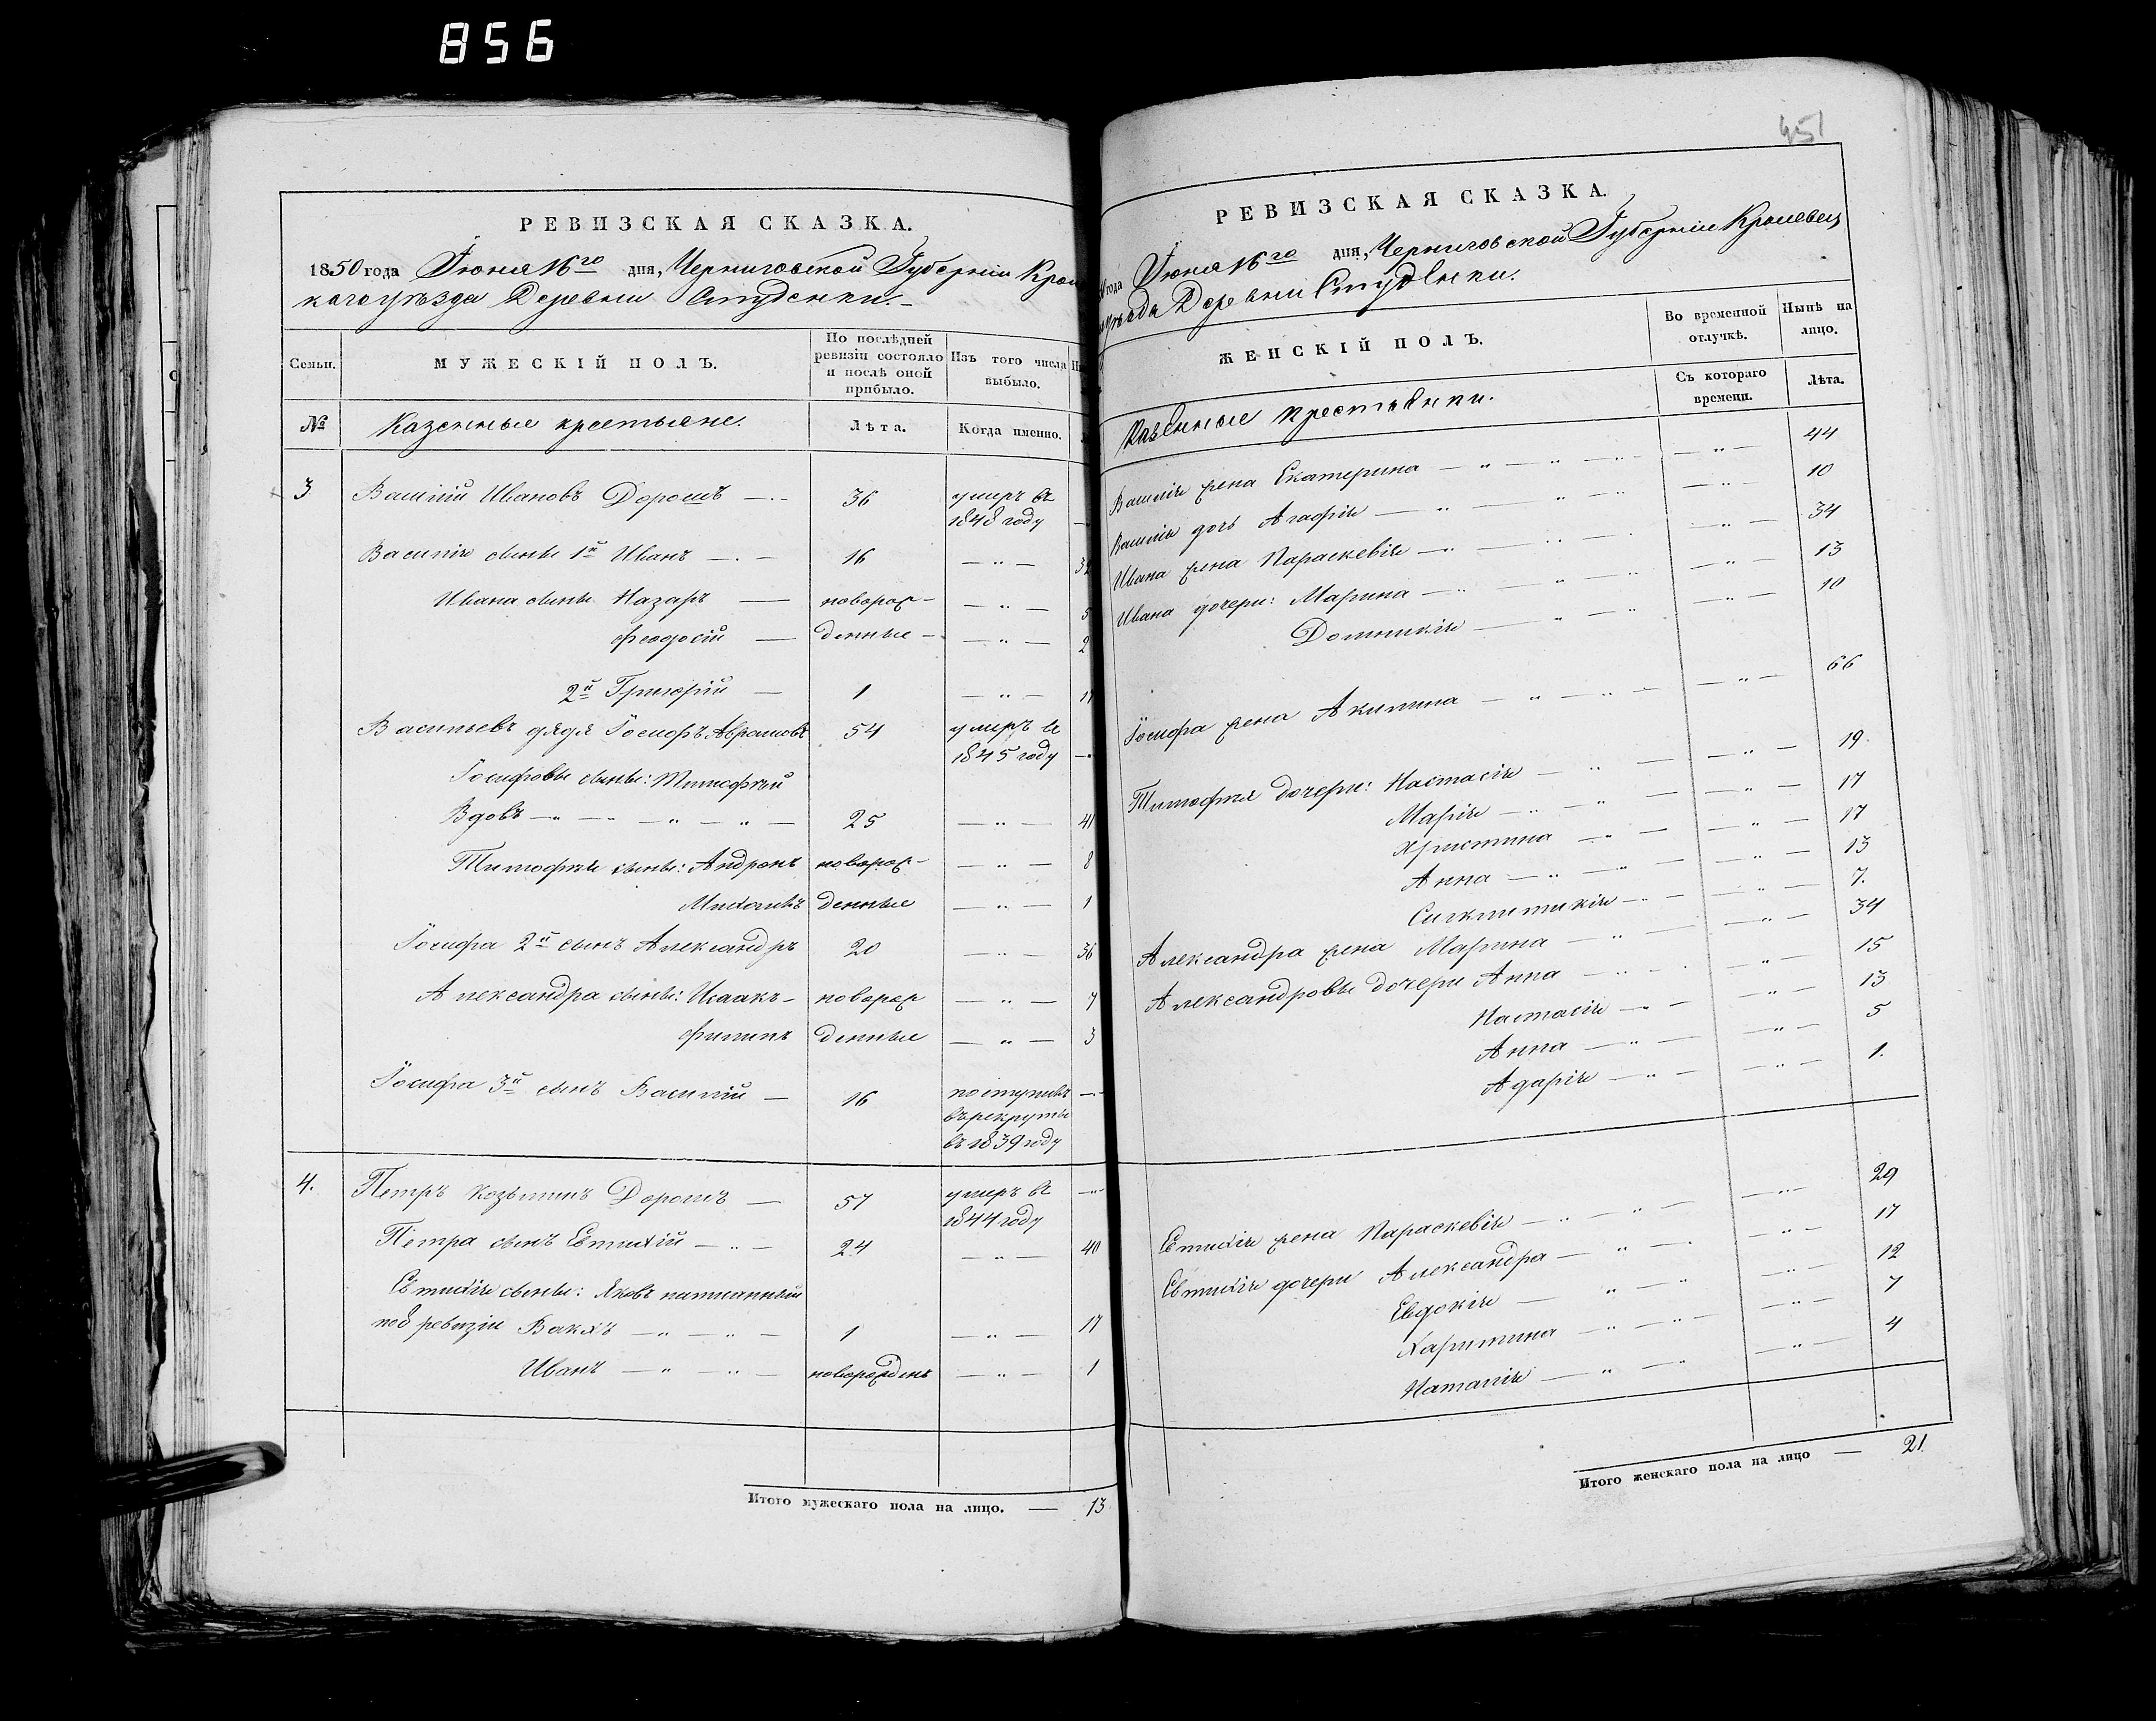 856
РЕВИЗСКАЯ СКАЗКА.
1850 года Іюня 16го дня, Черниговской Губерніи Крол
каго уѣзда Деревни Студенки.
Семьи. МУЖЕСКІЙ ПОЛЪ. По послѣдней ревизіи состояло и послѣ оной прибыло. Изъ того числа выбыло.
№ Казенные крестьяне. Лѣта. Когда именно.
3 Василій Ивановъ Дорошъ 36 умеръ въ
1848 году
Василія сыны 1й Иванъ 16
Ивана сыны Назаръ новорож- 5
Феодосій денные 2
2й Григорій 1
Васильевъ дядя Іосифъ Аврамовъ 54 умеръ въ
1845 году
Іосифовы сыны: Тимофѣй
Вдовъ 25 41
Тимофѣя сыны: Андронъ новорож- 8
Михаилъ денные 1
Іосифа 2й сынъ Александръ 20 36
Александра сыны: Исаакъ новорож 7
Филипъ денные 3
Іосифа 3й сынъ Василій 16 поступилъ
въ рекруты
въ 1839 году
4. Петръ Козьминъ Дорошъ 57 умеръ въ
1844 году
Петра сынъ Евтихій 24 40
Евтихія сыны: Яковъ написанный
по 8 ревизіи Вакхъ 1 17
Иванъ новорожденъ 1
Итого мужескаго пола на лицо. — 13
451
РЕВИЗСКАЯ СКАЗКА.
года Іюня 16го дня, Черниговской Губерніи Кролевец
уѣзда Деревни Студенки.
ЖЕНСКІЙ ПОЛЪ. Во временной отлучкѣ. Нынѣ на лицо.
Съ котораго времени. Лѣта.
Казенные крестьянки.
Василія жена Екатерина 44
Василія дочь Агафія 10
Ивана жена Параскевія 34
Ивана дочери: Марина 13
Домникія 10
Іосифа жена Акилина 66
Тимофѣя дочери: Настасія 19.
Марія 17
Христина 17
Анна 13
Сигклитикія 7.
Александра жена Марина 34
Александровы дочери Анна 15
Настасія 13
Анна 5
Адарія 1.
Евтихія жена Параскевія 29
Евтихія дочери Александра 17
Евдокія 12
Харитина 7
Наталія 4
Итого женскаго пола на лицо — 21.